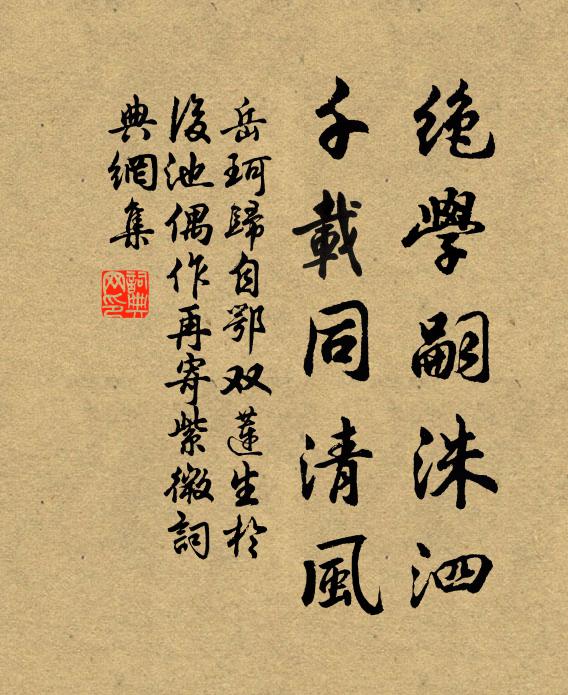 絶學嗣洙泗
千載同清風
岳珂歸自鄂双蓮生於
後池偶作再寄紫微詞
典網集
詞典網印